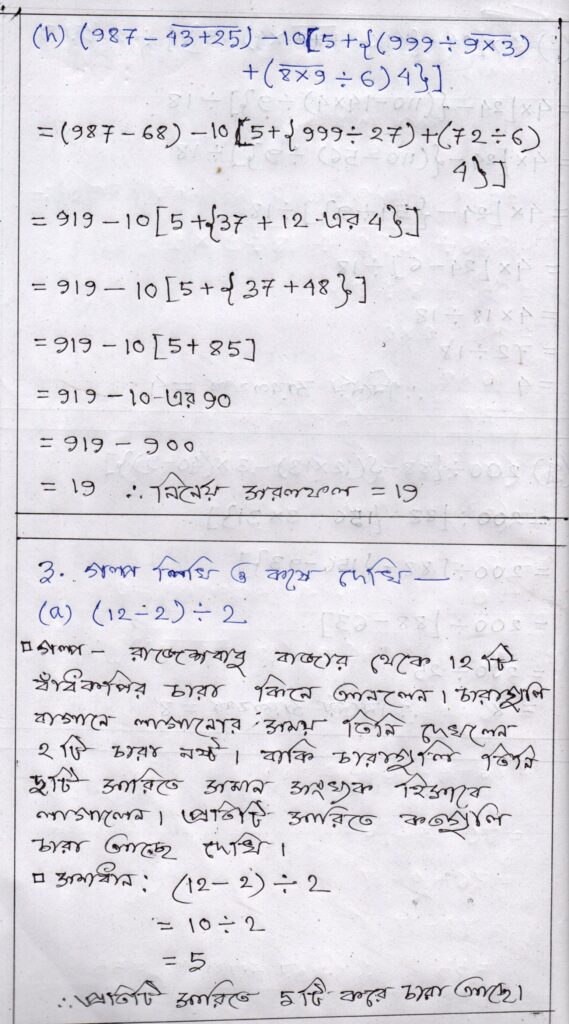 (h) (987 − 43+25) − 10[5+{(999÷9×3)
+(8×9÷6)4}]
=(987−68)−10[5+{999÷27)+(72÷6)
4}]
= 919 −10[5+{37 + 12 এর 4}]
= 919 − 10[5+{37+48}]
=919 −10[5+85]
=919 −10 এর 90
= 919 − 900
= 19 ∴ নির্ণেয় সরলফল = 19
3. গল্প লিখি ও কষে দেখি—
(a) (12−2)÷2
গল্প – রাজেশবাবু বাজার থেকে 12 টি
বাঁধাকপির চারা কিনে আনলেন। চারাগুলি
বাগানে লাগানোর সময় তিনি দেখলেন
২টি চারা নষ্ট। বাকি চারাগুলি তিনি
দুটি সারিতে সমান সংখ্যক হিসাবে
লাগালেন। প্রতিটি সারিতে কতগুলি
চারা আছে দেখি।
সমাধান: (12−2)÷2
= 10÷2
= 5
∴ প্রতিটি সারিতে 5টি করে চারা আছে।